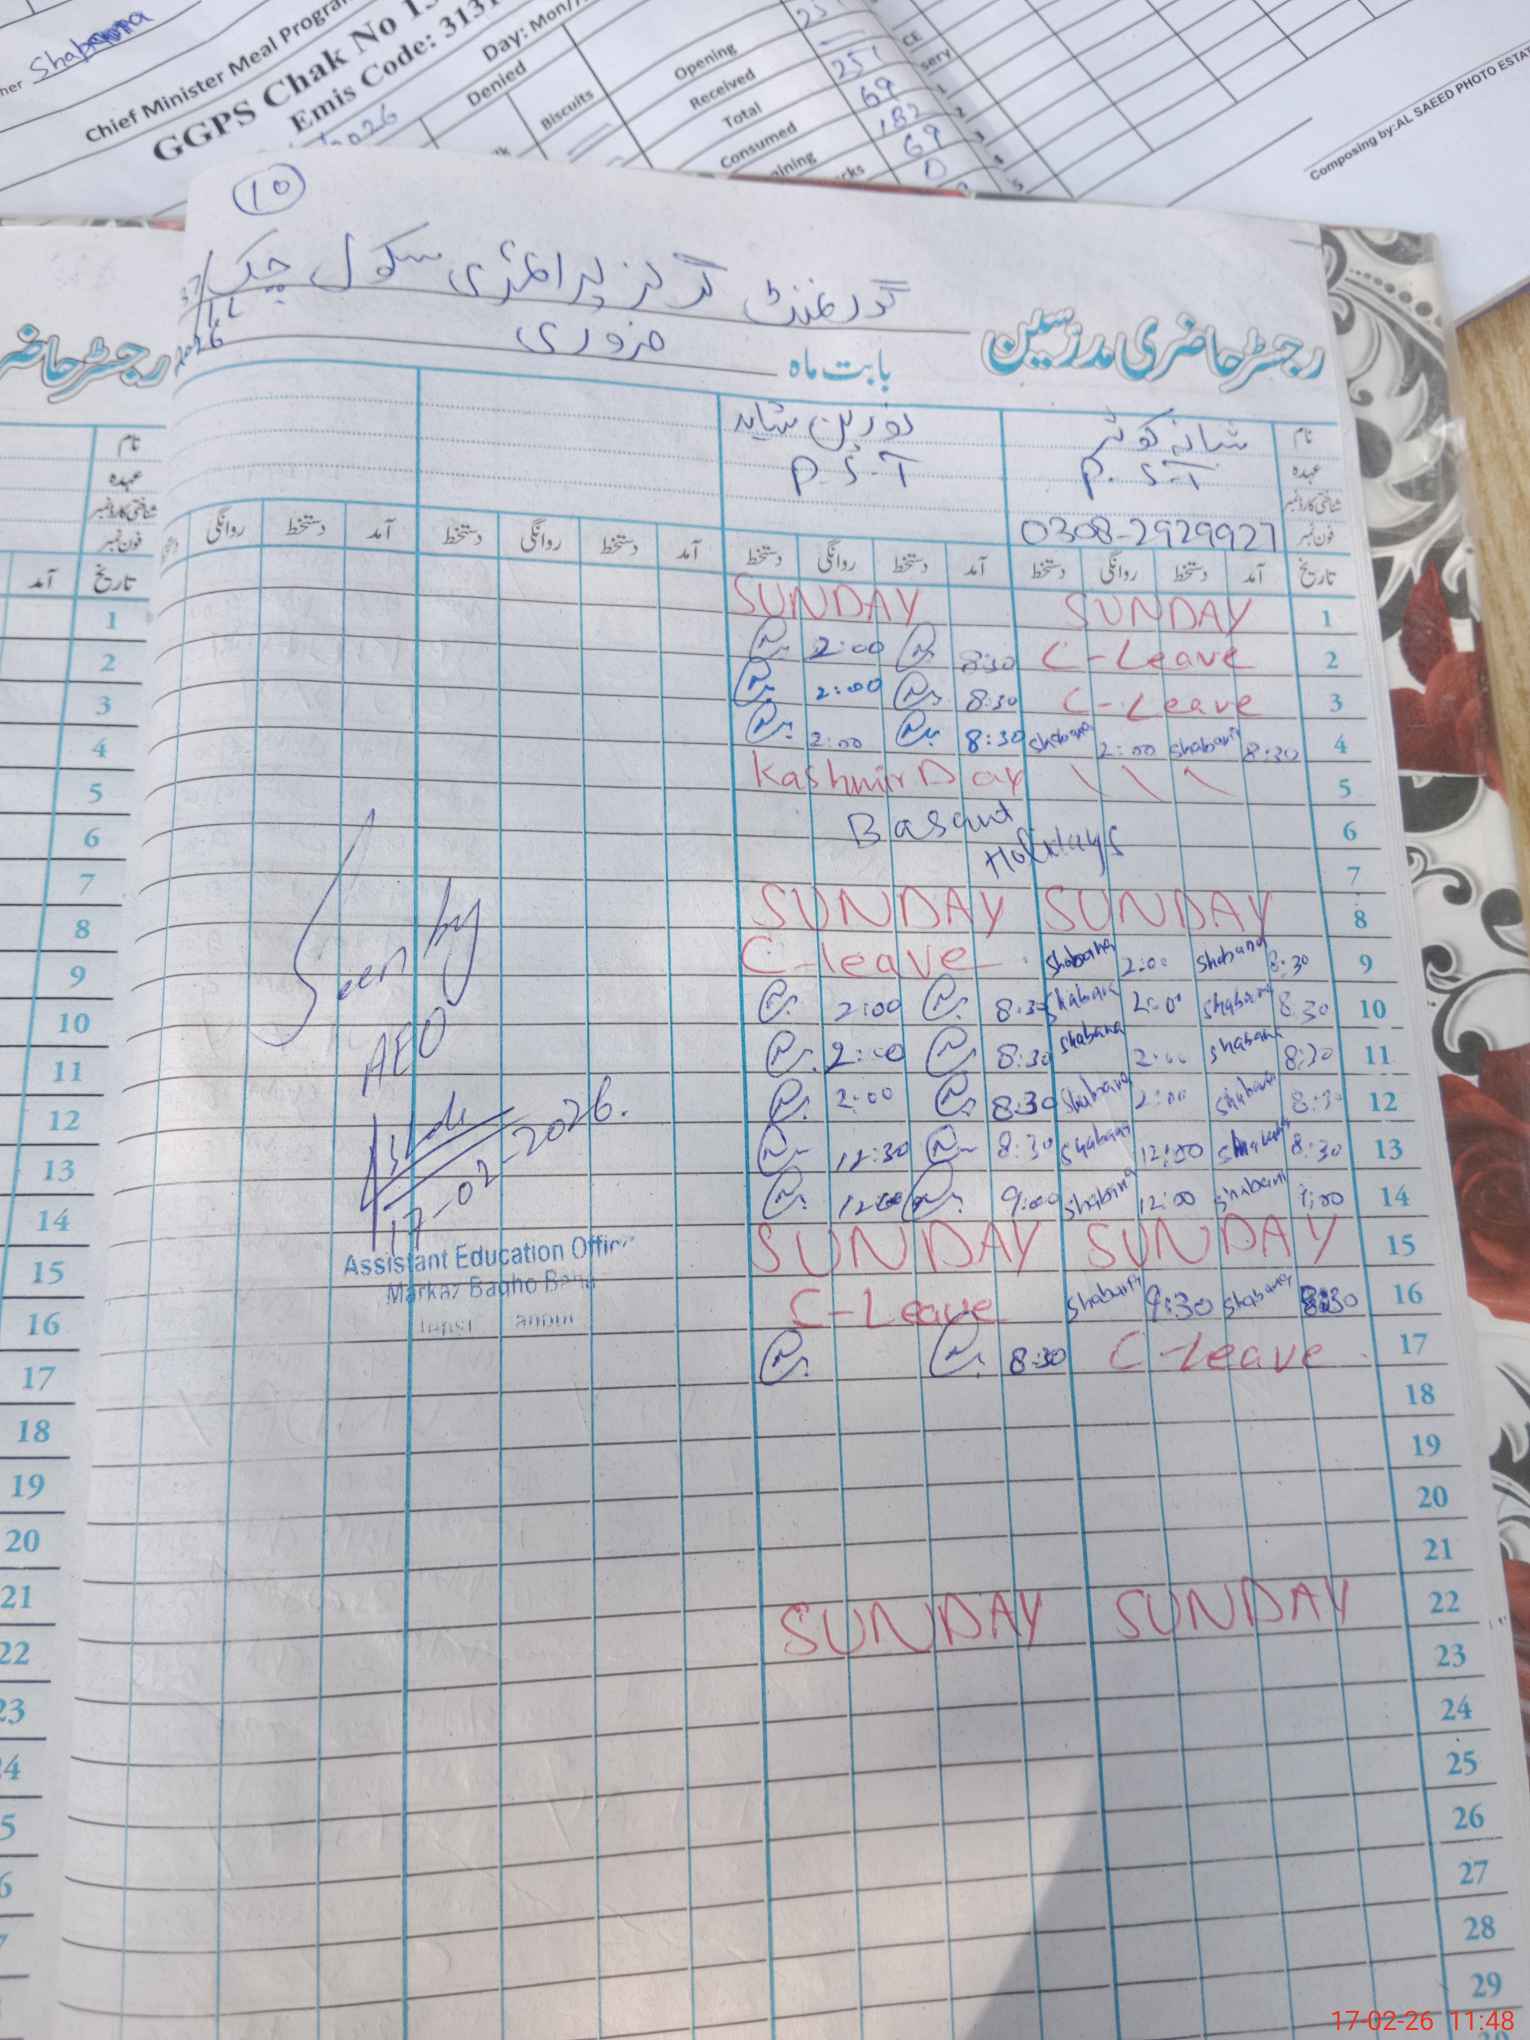 her Shabana
Chief Minister Meal Progra
GGPS Chak No 13
Emis Code: 3131
Day: Mon/
Denied
Biscuits
2026
Opening
Received
Total
Consumed
ining
cks
251
69
182
69
0
CE
sery
1
2
3
4
5
Composing by:AL SAEED PHOTO ESTA
10
گورنمنٹ گرلز پرائمری سکول چک
2026
رجسٹر حاضری مدرسین
بابت ماہ فروری
نام شبانہ کوثر نورین شاہد
عہدہ P.S.T P.S.T
شناختی کارڈ نمبر
فون نمبر 0308-2929927
تاریخ آمد دستخط روانگی دستخط آمد دستخط روانگی دستخط آمد دستخط روانگی دستخط آمد دستخط روانگی
1 SUNDAY SUNDAY
2 C-Leave 8:30 2:00
3 C-Leave 8:30 2:00
4 8:30 Shabana 2:00 Shabana 8:30 2:00
5 Kashmir Day
6 Basant
Holidays
7
8 SUNDAY SUNDAY
9 8:30 Shabana 2:00 Shabana C-leave
10 8:30 Shabana 2:00 Shabana 8:30 2:00
11 8:30 Shabana 2:00 Shabana 8:30 2:00
12 8:30 Shabana 2:00 Shabana 8:30 2:00
13 8:30 Shabana 12:00 Shabana 8:30 12:30
14 9:00 Shabana 12:00 Shabana 9:00 12:00
15 SUNDAY SUNDAY
16 8:30 Shabana 9:30 Shabana C-Leave
17 C-Leave 8:30
18
19
20
21
22 SUNDAY SUNDAY
23
24
25
26
27
28
29
Seen by
AEO
17-02-2026.
Assistant Education Officer
Markaz Bagho Bahar
رجسٹر حاضر
نام
عہدہ
شناختی کارڈ نمبر
فون نمبر
تاریخ آمد
1
2
3
4
5
6
7
8
9
10
11
12
13
14
15
16
17
18
19
20
21
22
23
24
5
6
17-02-26 11:48